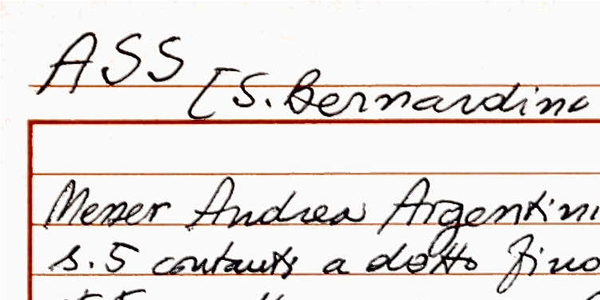 ASS
[S. Bernardino
Messer Andrea Argentini
s. 5 contauts a dotto fino